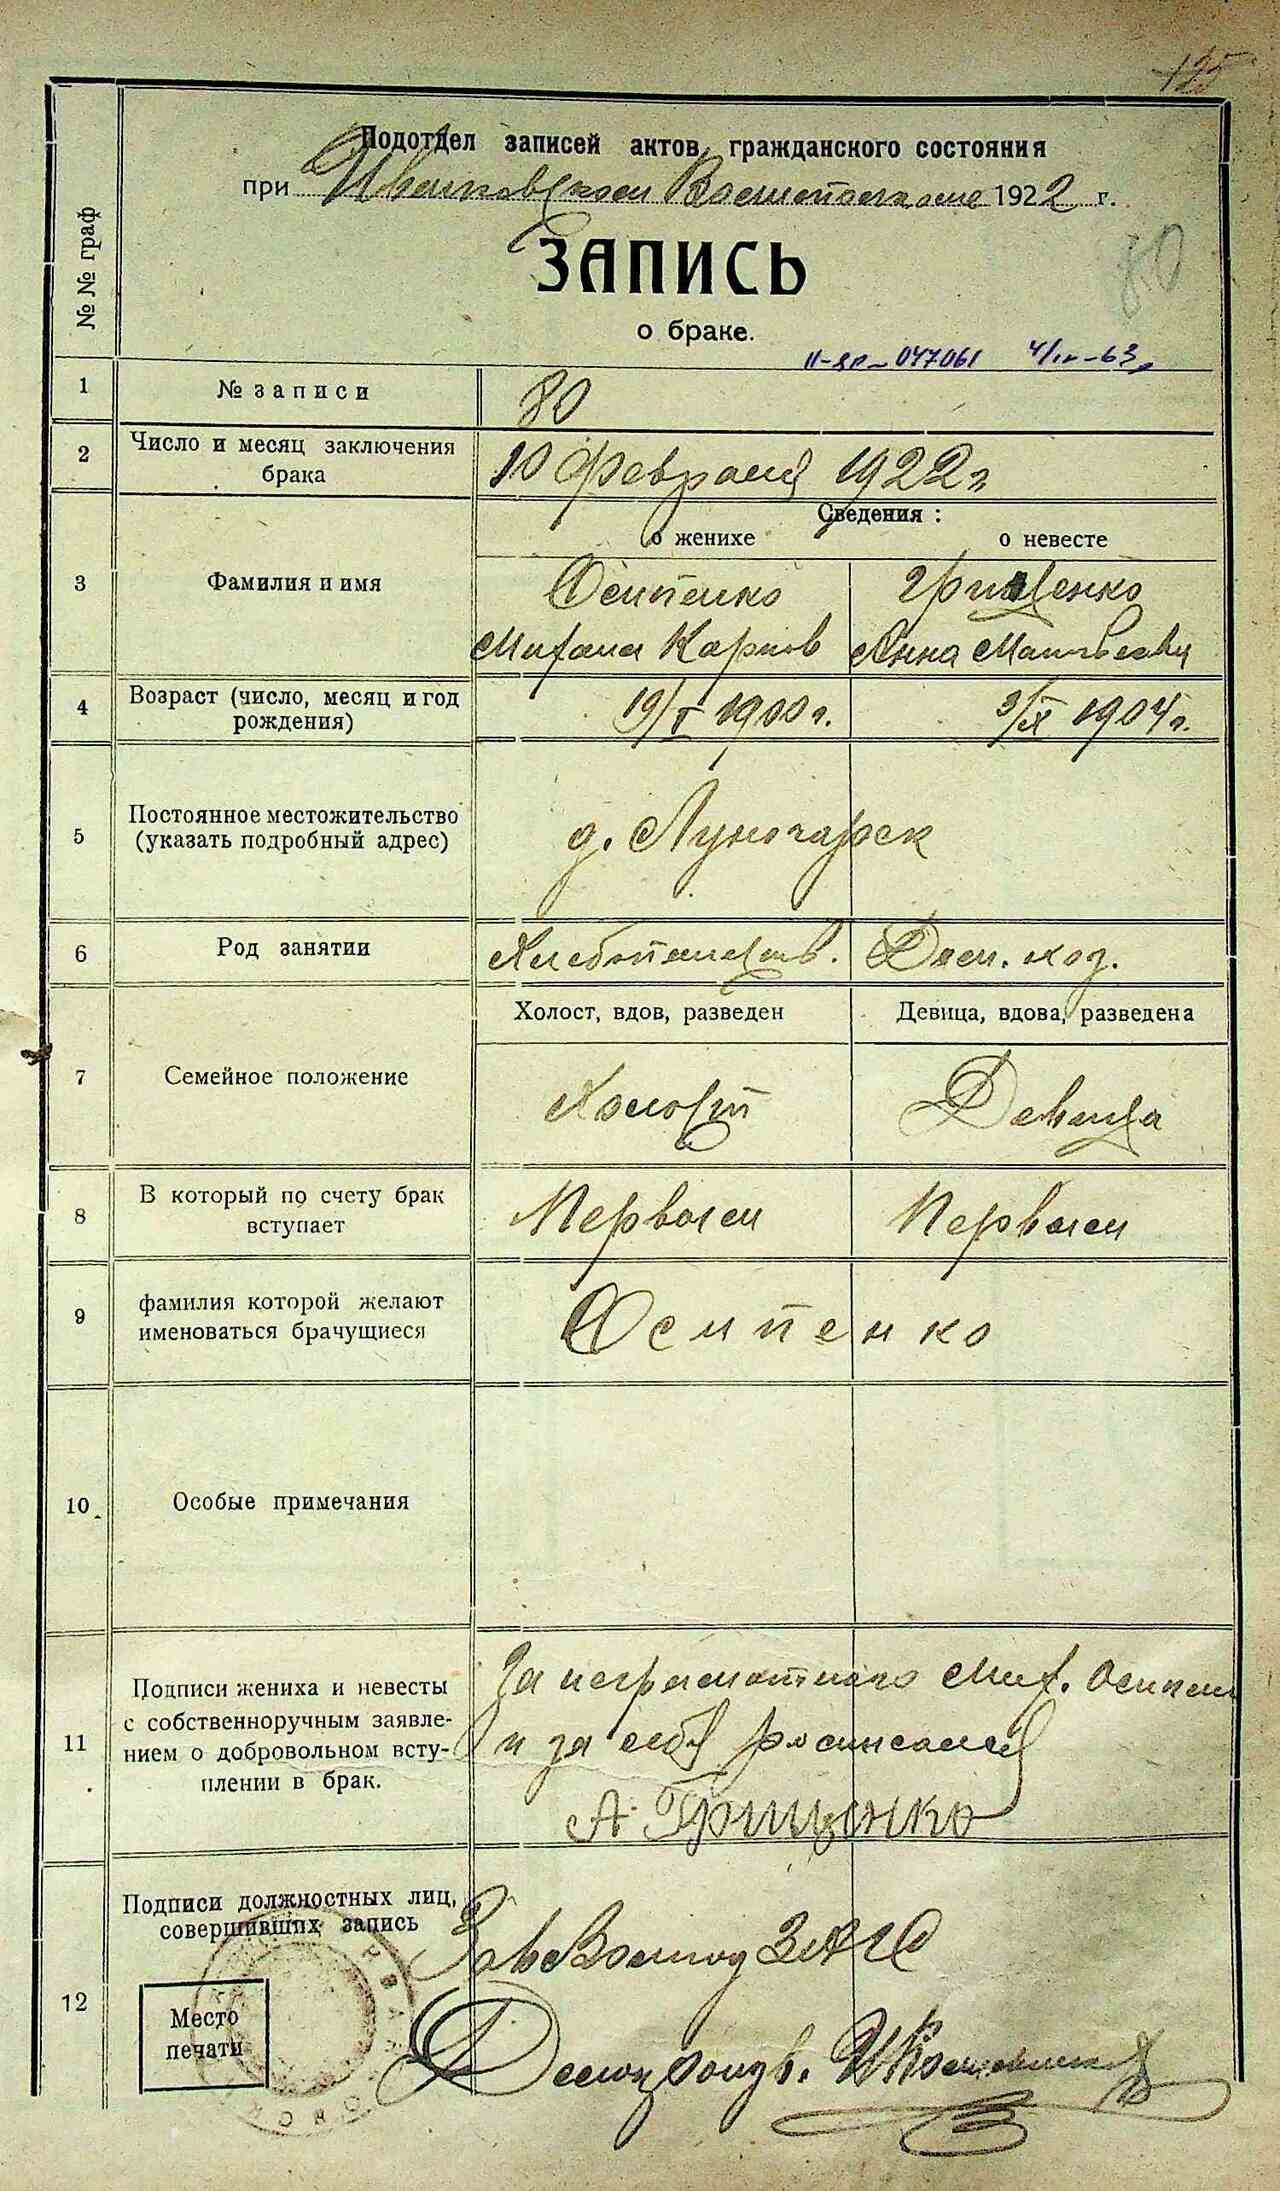 125
Подотдел записей актов гражданского состояния
при Ивановском Волисполкоме 1922 г.
80
ЗАПИСЬ
о браке.
II-ЯР-047061 4/IV-63г
№ № граф
1 № записи 80
2 Число и месяц заключения
брака
10 февраля 1922 г.
Сведения:
о женихе о невесте
3 Фамилия и имя
Осипенко Грищенко
Михаил Карпов Анна Матвеевн
4 Возраст (число, месяц и год
рождения)
19/I 1900 г. 3/IX 1904 г.
5 Постоянное местожительство
(указать подробный адрес)
д. Луночарск
6 Род занятии Хлебопашест. Дом. хоз.
Холост, вдов, разведен Девица, вдова, разведена
7 Семейное положение Холост Девица
8 В который по счету брак
вступает
Первый Первый
9 фамилия которой желают
именоваться брачущиеся
Осипенко
10 Особые примечания
11 Подписи жениха и невесты
с собственноручным заявле-
нием о добровольном всту-
плении в брак.
За неграмотного Мих. Осипен
и за себя росписалася
А Грищенко
12 Подписи должностных лиц,
совершивших запись
Место
печати
Зав Волпод ЗАГС